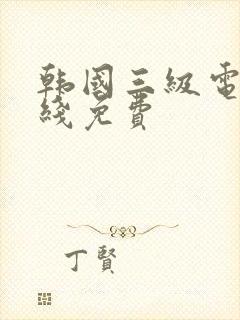 韩國三級電
綫免費
丁賢